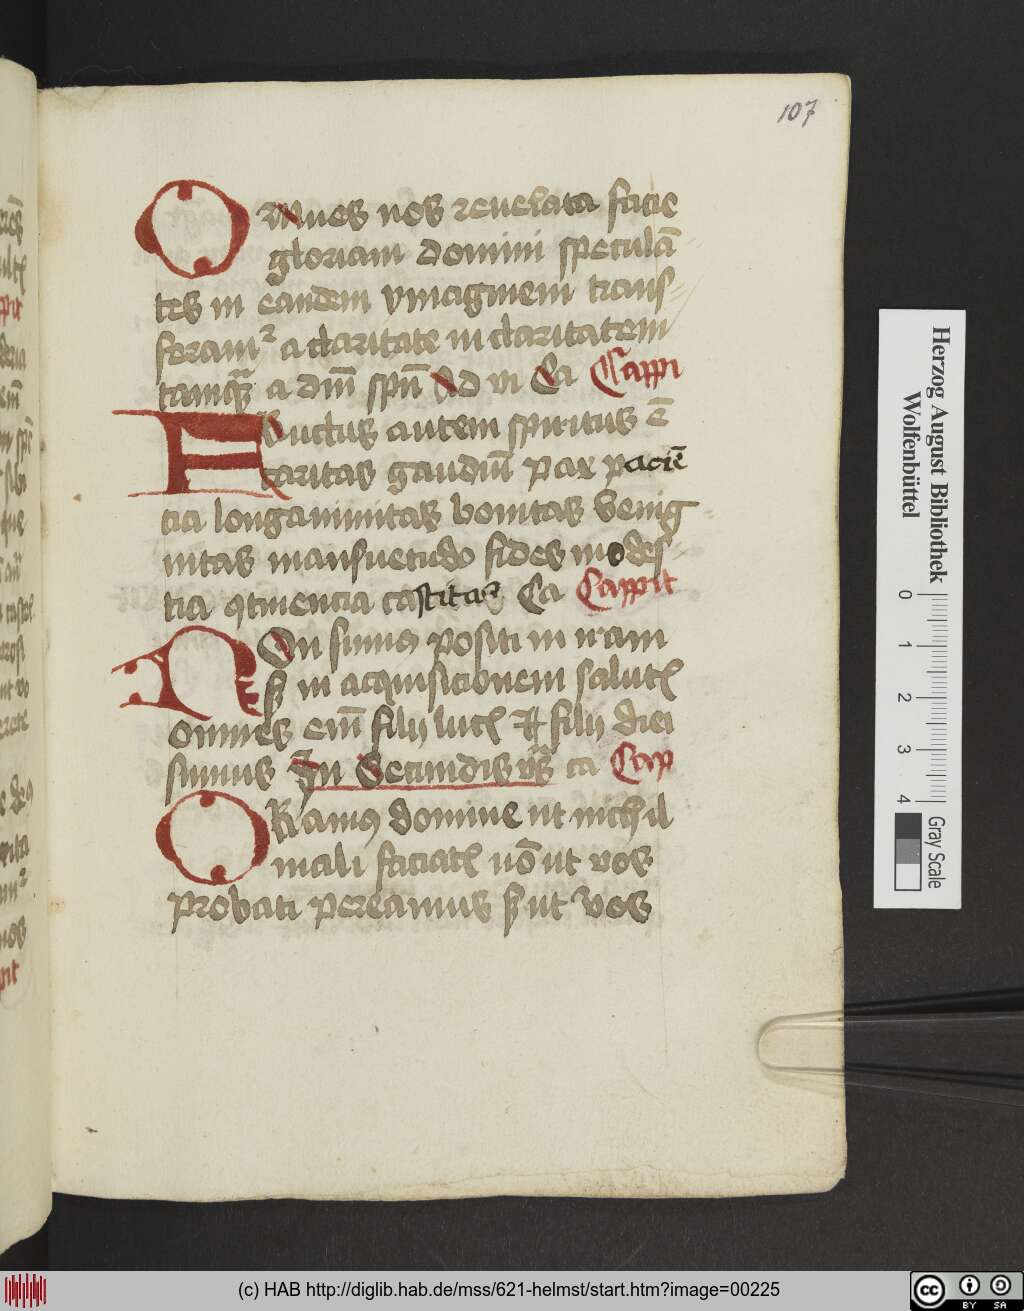 107
Omnes nos reuelata facie
gloriam domini speculā
tes in eandem ymaginem trans
feramr a claritate in claritatem
tamqꝫ a dm̄ spū Ad vi Ca Cappi
Fructus autem spiritus ē
caritas gaudiū pax paciē
cia longanimitas bonitas benig
nitas mansuetudo fides modes
tia ꝯtinencia castitas Ca Cappit
Non sumꝰ positi in iram
sꝫ in acquisicionem salutꝭ
omnes em̄ filij lucꝭ ⁊ filij diei
sumus In Secundis ca Cap
ORamꝰ domine ut nichil
mali faciatꝭ nō ut vos
probati pereamus sꝫ ut vos
Herzog August Bibliothek
Wolfenbüttel
0 1 2 3 4
Gray Scale
(c) HAB http://diglib.hab.de/mss/621-helmst/start.htm?image=00225
cc BY SA